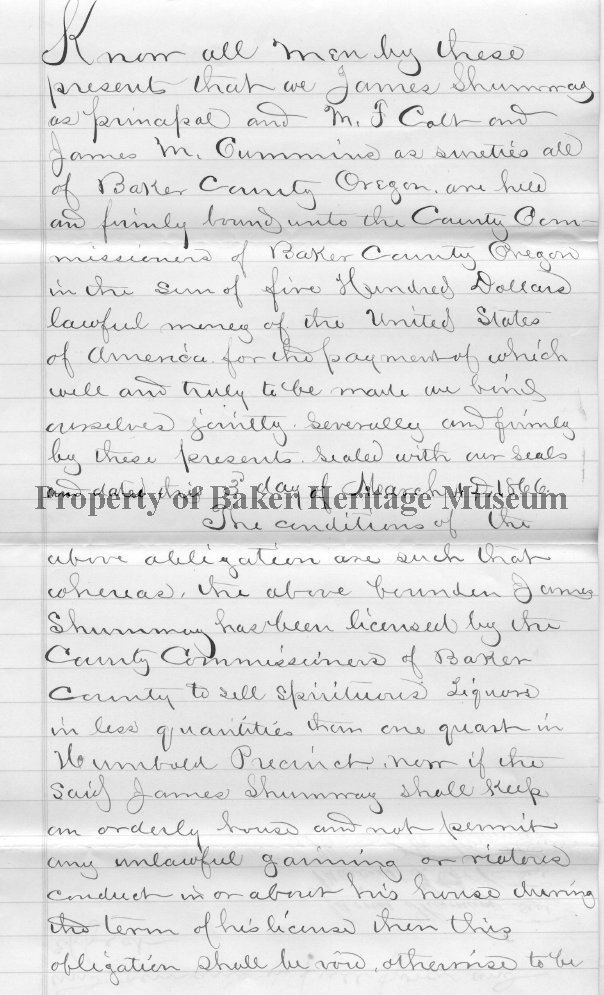 Know all men by these
presents that we James Shumway
as principal and M. F Colt and
James M. Cummins as sureties all
of Baker County Oregon, are held
and firmly bound unto the County Com-
missioners of Baker County Oregon
in the sum of five Hundred Dollars
lawful money of the United States
of America for the payment of which
well and truly to be made we bind
ourselves jointly, severally and firmly
by these presents. Sealed with our seals
and dated this 3d day of March AD 1866
Property of Baker Heritage Museum
The conditions of the
above obligation are such that
whereas, the above bounden James
Shumway has been licensed by the
County Commissioners of Baker
County to sell Spirituous Liquors
in less quantities than one quart in
Humbold Precinct, now if the
said James Shumway shall keep
an orderly house and not permit
any unlawful gaming or riotous
conduct in or about his house during
the term of his license then this
obligation shall be void, otherwise to be